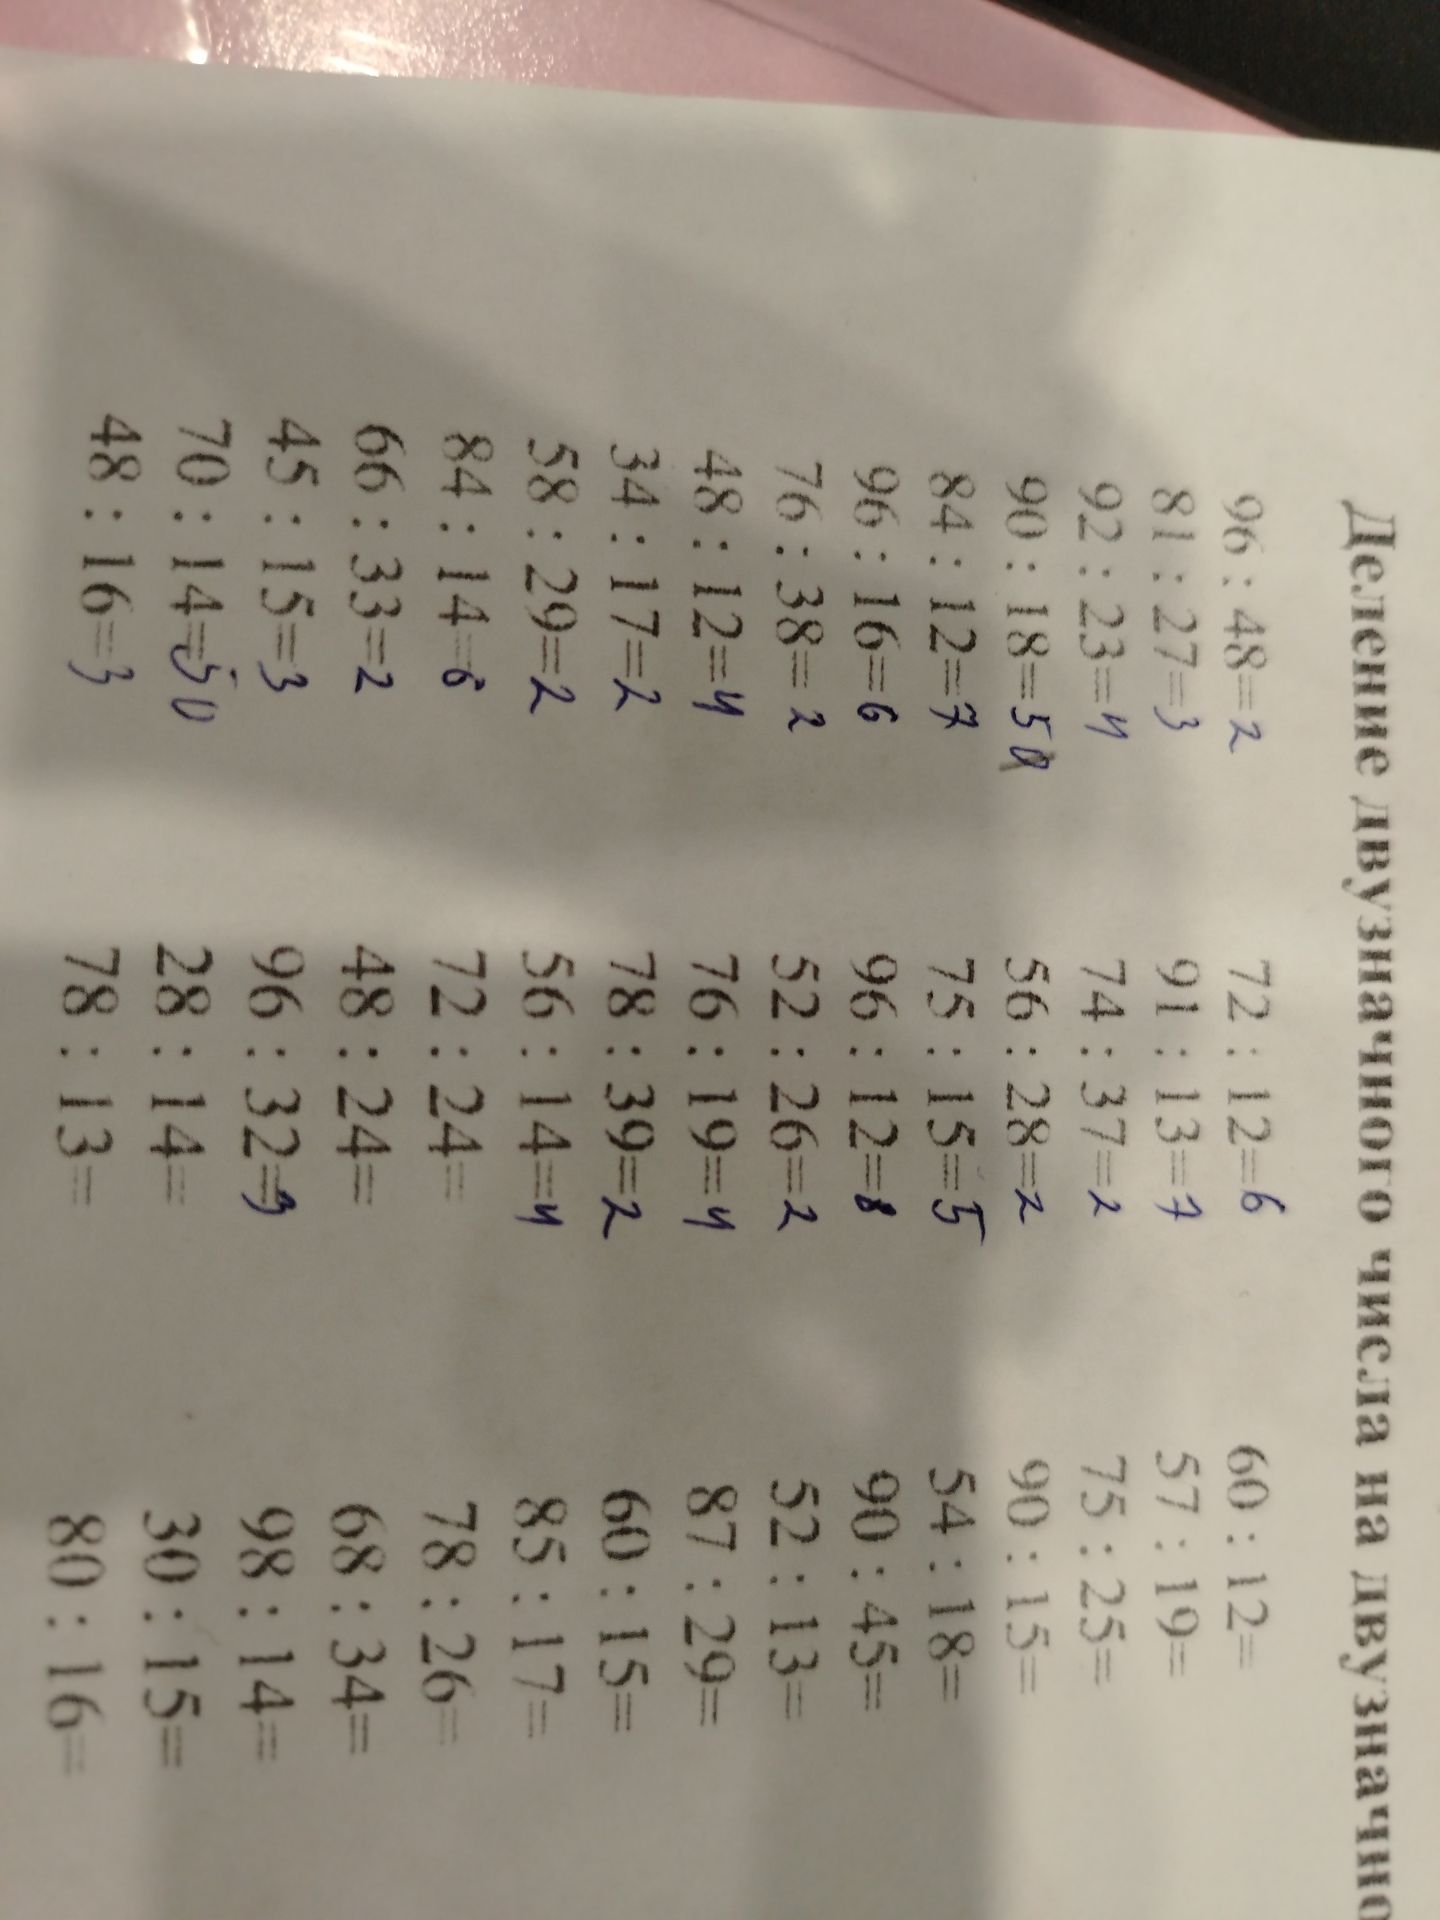 Деление двузначного числа на двузначно
96 : 48=2 72 : 12=6 60 : 12=
81 : 27=3 91 : 13=7 57 : 19=
92 : 23=4 74 : 37=2 75 : 25=
90 : 18=5 56 : 28=2 90 : 15=
84 : 12=7 75 : 15=5 54 : 18=
96 : 16=6 96 : 12=8 90 : 45=
76 : 38=2 52 : 26=2 52 : 13=
48 : 12=4 76 : 19=4 87 : 29=
34 : 17=2 78 : 39=2 60 : 15=
58 : 29=2 56 : 14=4 85 : 17=
84 : 14=6 72 : 24= 78 : 26=
66 : 33=2 48 : 24= 68 : 34=
45 : 15=3 96 : 32=3 98 : 14=
70 : 14=50 28 : 14= 30 : 15=
48 : 16=3 78 : 13= 80 : 16=